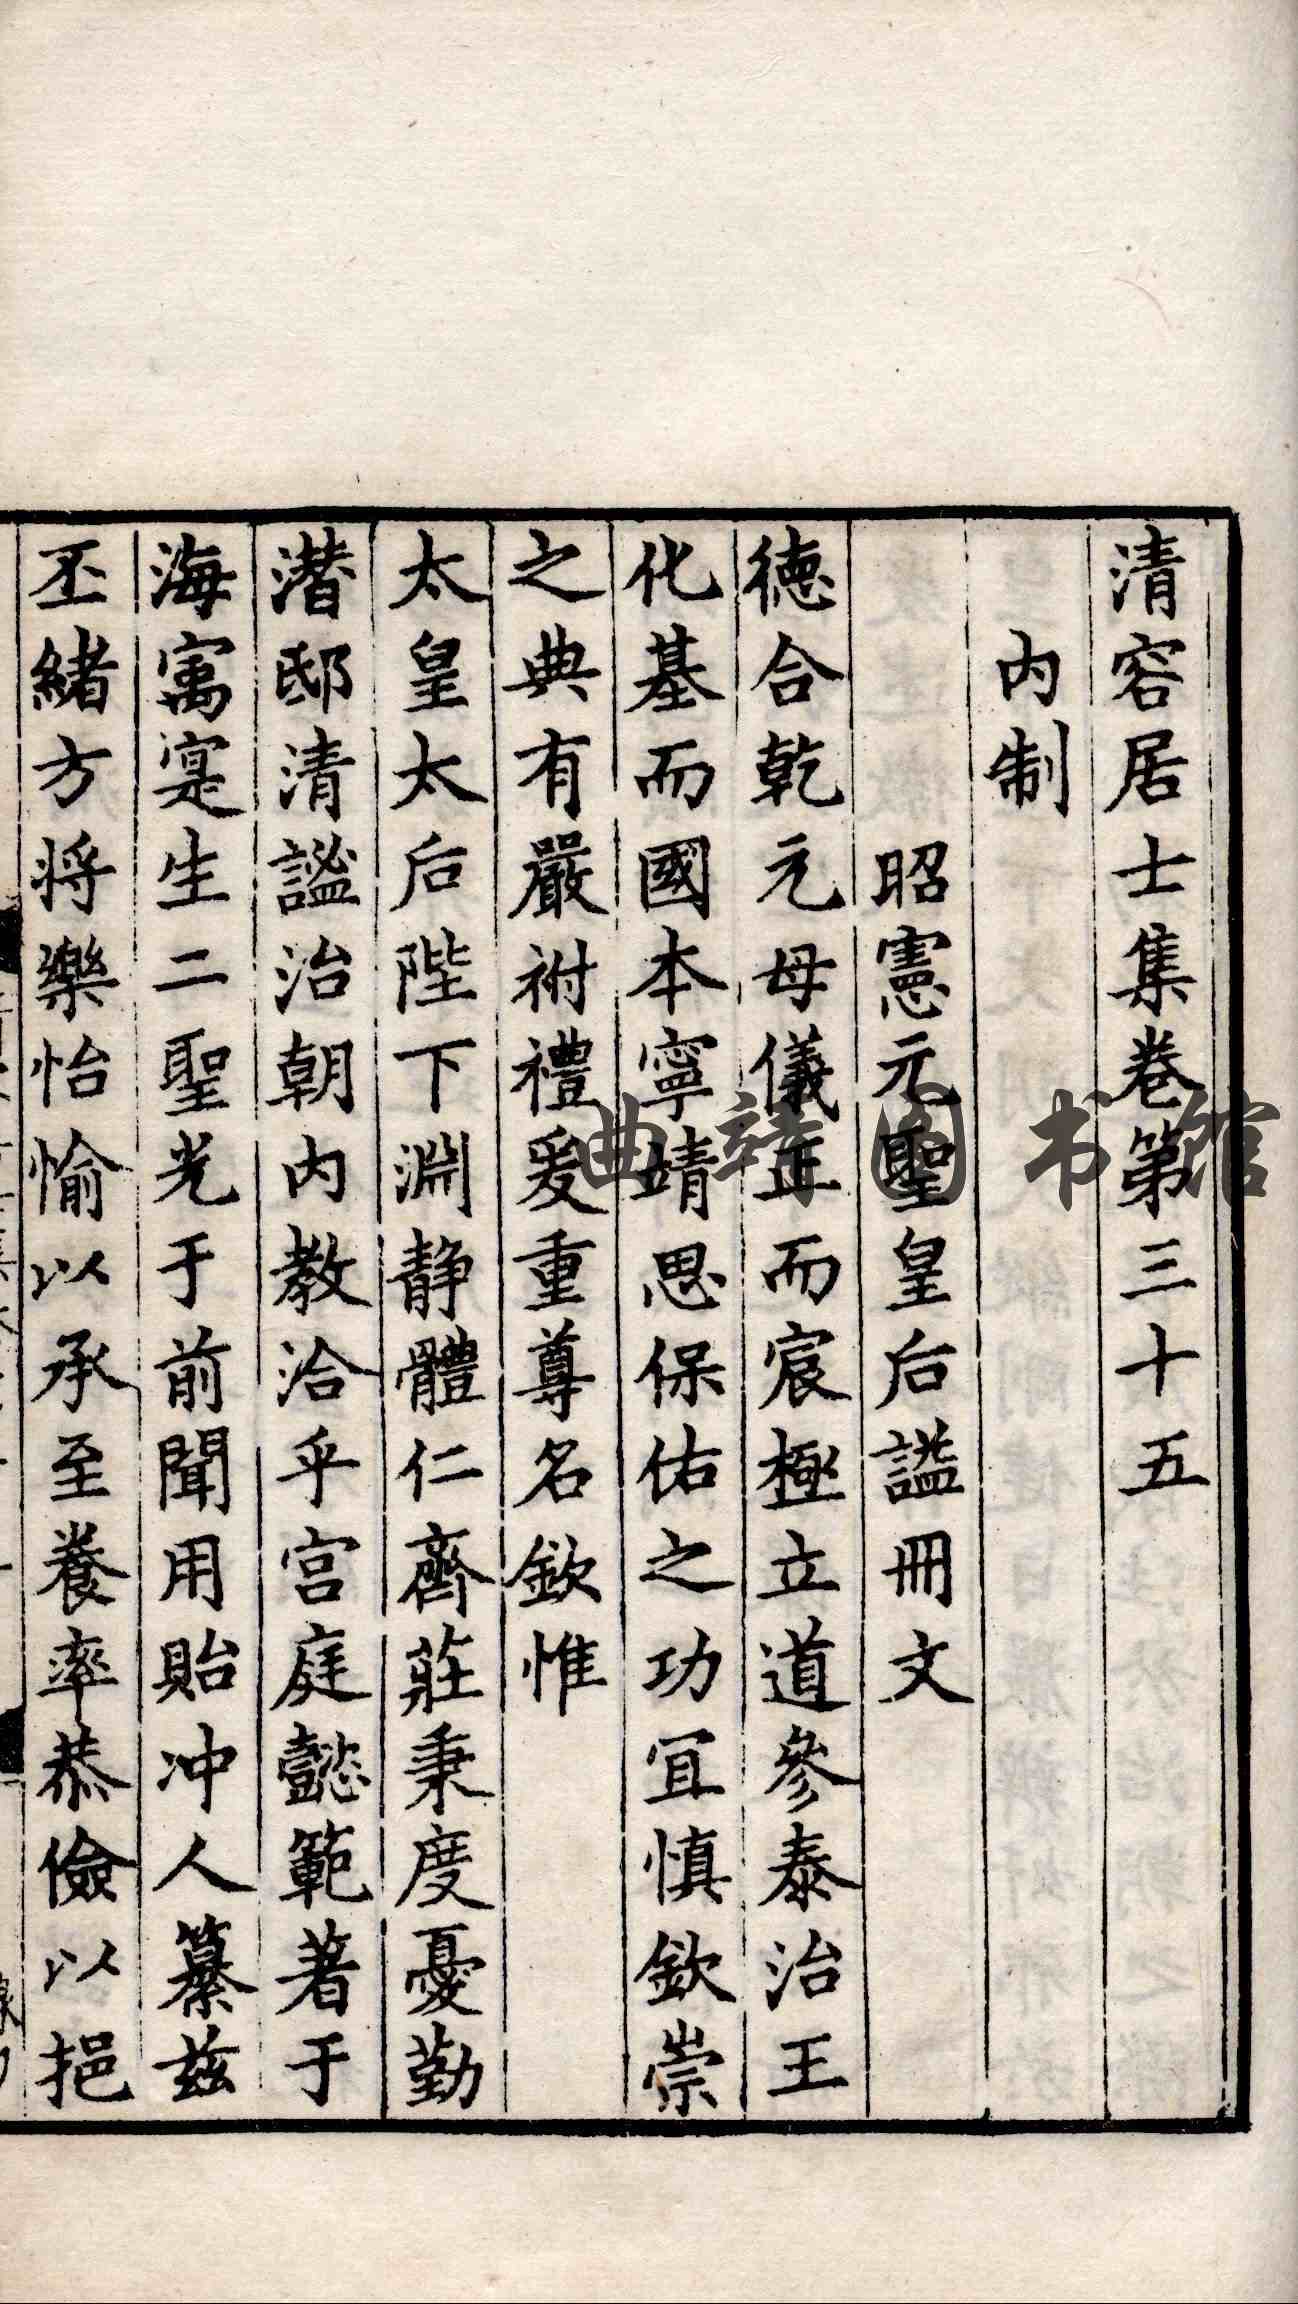 清容居士集卷第三十五
内制
昭憲元聖皇后諡冊文
徳合乾元母儀正而宸極立道參泰治王
化基而國本寧靖思保佑之功宜慎欽崇
之典有嚴祔禮爰重尊名欽惟
太皇太后陛下淵静體仁齊莊秉度憂勤
潛邸清謐治朝内教洽乎宫庭懿範著于
海寓寔生二聖光于前聞用貽冲人纂兹
丕緒方将樂怡愉以承至養率恭儉以挹
曲靖图书馆